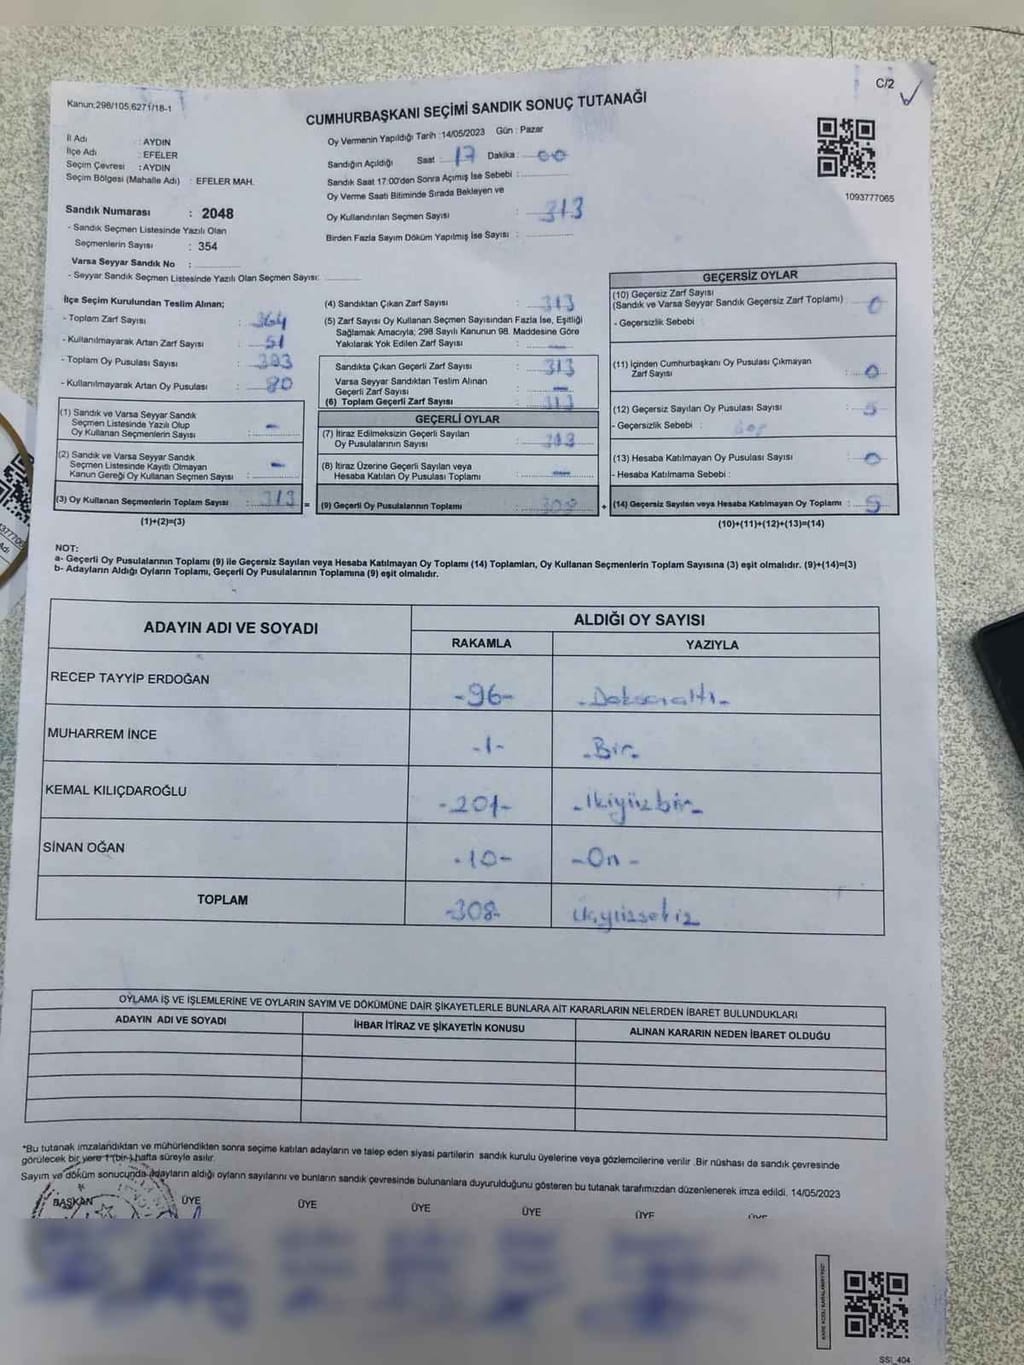 C/2
Kanun:298/105,6271/18-1
CUMHURBAŞKANI SEÇİMİ SANDIK SONUÇ TUTANAĞI
İl Adı : AYDIN
İlçe Adı : EFELER
Seçim Çevresi : AYDIN
Seçim Bölgesi (Mahalle Adı) : EFELER MAH.
Oy Vermenin Yapıldığı Tarih :14/05/2023 Gün : Pazar
Sandığın Açıldığı Saat : 17 Dakika : 00
Sandık Saat 17:00'den Sonra Açımış İse Sebebi :
Oy Verme Saati Bitiminde Sırada Bekleyen ve
Oy Kullandırılan Seçmen Sayısı : 313
Birden Fazla Sayım Döküm Yapılmış İse Sayısı :
1093777065
Sandık Numarası : 2048
- Sandık Seçmen Listesinde Yazılı Olan
Seçmenlerin Sayısı : 354
Varsa Seyyar Sandık No :
- Seyyar Sandık Seçmen Listesinde Yazılı Olan Seçmen Sayısı:
İlçe Seçim Kurulundan Teslim Alınan;
- Toplam Zarf Sayısı : 364
- Kullanılmayarak Artan Zarf Sayısı : 51
- Toplam Oy Pusulası Sayısı : 393
- Kullanılmayarak Artan Oy Pusulası : 80
(1) Sandık ve Varsa Seyyar Sandık
Seçmen Listesinde Yazılı Olup
Oy Kullanan Seçmenlerin Sayısı : -
(2) Sandık ve Varsa Seyyar Sandık
Seçmen Listesinde Kayıtlı Olmayan
Kanun Gereği Oy Kullanan Seçmen Sayısı : -
(3) Oy Kullanan Seçmenlerin Toplam Sayısı : 313 =
(1)+(2)=(3)
(4) Sandıktan Çıkan Zarf Sayısı : 313
(5) Zarf Sayısı Oy Kullanan Seçmen Sayısından Fazla İse, Eşitliği
Sağlamak Amacıyla; 298 Sayılı Kanunun 98. Maddesine Göre
Yakılarak Yok Edilen Zarf Sayısı : -
Sandıkta Çıkan Geçerli Zarf Sayısı : 313
Varsa Seyyar Sandıktan Teslim Alınan
Geçerli Zarf Sayısı : -
(6) Toplam Geçerli Zarf Sayısı : 313
GEÇERLİ OYLAR
(7) İtiraz Edilmeksizin Geçerli Sayılan
Oy Pusulalarının Sayısı :
(8) İtiraz Üzerine Geçerli Sayılan veya
Hesaba Katılan Oy Pusulası Toplamı : -
(9) Geçerli Oy Pusulalarının Toplamı : 308 +
GEÇERSİZ OYLAR
(10) Geçersiz Zarf Sayısı
(Sandık ve Varsa Seyyar Sandık Geçersiz Zarf Toplamı) : 0
- Geçersizlik Sebebi :
(11) İçinden Cumhurbaşkanı Oy Pusulası Çıkmayan
Zarf Sayısı : 0
(12) Geçersiz Sayılan Oy Pusulası Sayısı : 5
- Geçersizlik Sebebi :
(13) Hesaba Katılmayan Oy Pusulası Sayısı : 0
- Hesaba Katılmama Sebebi :
(14) Geçersiz Sayılan veya Hesaba Katılmayan Oy Toplamı : 5
(10)+(11)+(12)+(13)=(14)
NOT:
a- Geçerli Oy Pusulalarının Toplamı (9) ile Geçersiz Sayılan veya Hesaba Katılmayan Oy Toplamı (14) Toplamları, Oy Kullanan Seçmenlerin Toplam Sayısına (3) eşit olmalıdır. (9)+(14)=(3)
b- Adayların Aldığı Oyların Toplamı, Geçerli Oy Pusulalarının Toplamına (9) eşit olmalıdır.
ADAYIN ADI VE SOYADI
ALDIĞI OY SAYISI
RAKAMLA YAZIYLA
RECEP TAYYİP ERDOĞAN -96- -Doksanaltı-
MUHARREM İNCE -1- -Bir-
KEMAL KILIÇDAROĞLU -201- -İkiyüzbir-
SİNAN OĞAN -10- -On-
TOPLAM -308- Üçyüzsekiz
OYLAMA İŞ VE İŞLEMLERİNE VE OYLARIN SAYIM VE DÖKÜMÜNE DAİR ŞİKAYETLERLE BUNLARA AİT KARARLARIN NELERDEN İBARET BULUNDUKLARI
ADAYIN ADI VE SOYADI İHBAR İTİRAZ VE ŞİKAYETİN KONUSU ALINAN KARARIN NEDEN İBARET OLDUĞU
*Bu tutanak imzalandıktan ve mühürlendikten sonra seçime katılan adayların ve talep eden siyasi partilerin sandık kurulu üyelerine veya gözlemcilerine verilir .Bir nüshası da sandık çevresinde
görülecek bir yere 1 (bir) hafta süreyle asılır.
Sayım ve döküm sonucunda adayların aldığı oyların sayılarını ve bunların sandık çevresinde bulunanlara duyurulduğunu gösteren bu tutanak tarafımızdan düzenlenerek imza edildi. 14/05/2023
BAŞKAN ÜYE ÜYE ÜYE ÜYE ÜYE ÜYE
SSI_404